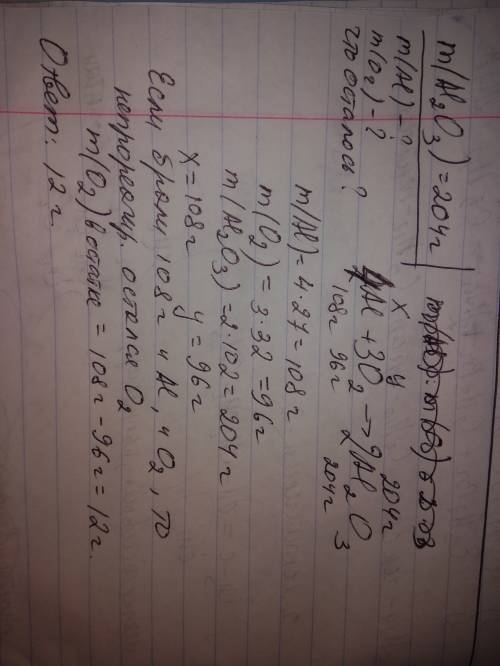 m(Al₂O₃) = 204г
m(Al) - ?
m(O₂) - ?
что осталось?
x y 204г
4Al + 3O₂ → 2Al₂O₃
108г 96г 204г
m(Al) = 4·27 = 108г
m(O₂) = 3·32 = 96г
m(Al₂O₃) = 2·102 = 204г
x = 108г y = 96г
Если брали 108г и Al, и O₂, то
непрореагир. остался O₂
m(O₂) в остатке = 108г - 96г = 12г.
Ответ: 12г